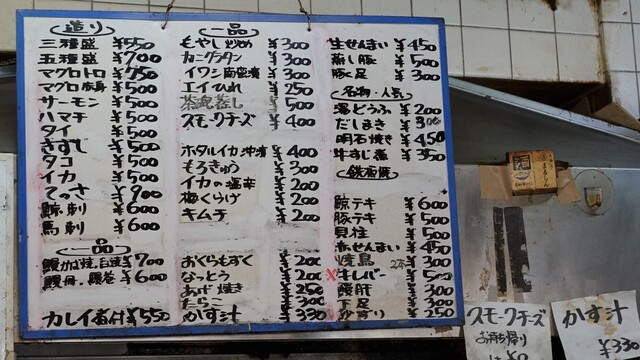 造り
三種盛 ¥550
五種盛 ¥700
マグロトロ ¥750
マグロ赤身 ¥500
サーモン ¥500
ハマチ ¥500
タイ ¥500
きずし ¥500
タコ ¥500
イカ ¥500
てっさ ¥900
鯨刺 ¥600
馬刺 ¥600
一品
鰻かば焼・白焼 ¥700
鰻丼、鰻巻 ¥600
カレイ煮付 ¥550
一品
もやし炒め ¥300
カニグラタン ¥300
イワシ南蛮漬 ¥300
エイひれ ¥250
茶碗蒸し ¥500
スモークチーズ ¥400
ホタルイカ沖漬 ¥400
もろきゅう ¥300
イカの塩辛 ¥200
梅くらげ ¥200
キムチ ¥200
おくらもずく ¥200
なっとう ¥200
あげ焼き ¥250
たらこ ¥300
かす汁 ¥330
生ぜんまい ¥450
蒸し豚 ¥500
豚足 ¥300
名物・人気
湯どうふ ¥200
だしまき ¥300
明石焼き ¥450
牛すじ煮 ¥350
鉄板焼
鯨テキ ¥600
豚テキ ¥500
貝柱 ¥500
赤せんまい ¥450
焼鳥 2本 ¥300
牛レバー ¥500
鰻肝 ¥300
下足 ¥300
砂ずり ¥250
スモークチーズ
お持ち帰り
かす汁
¥330